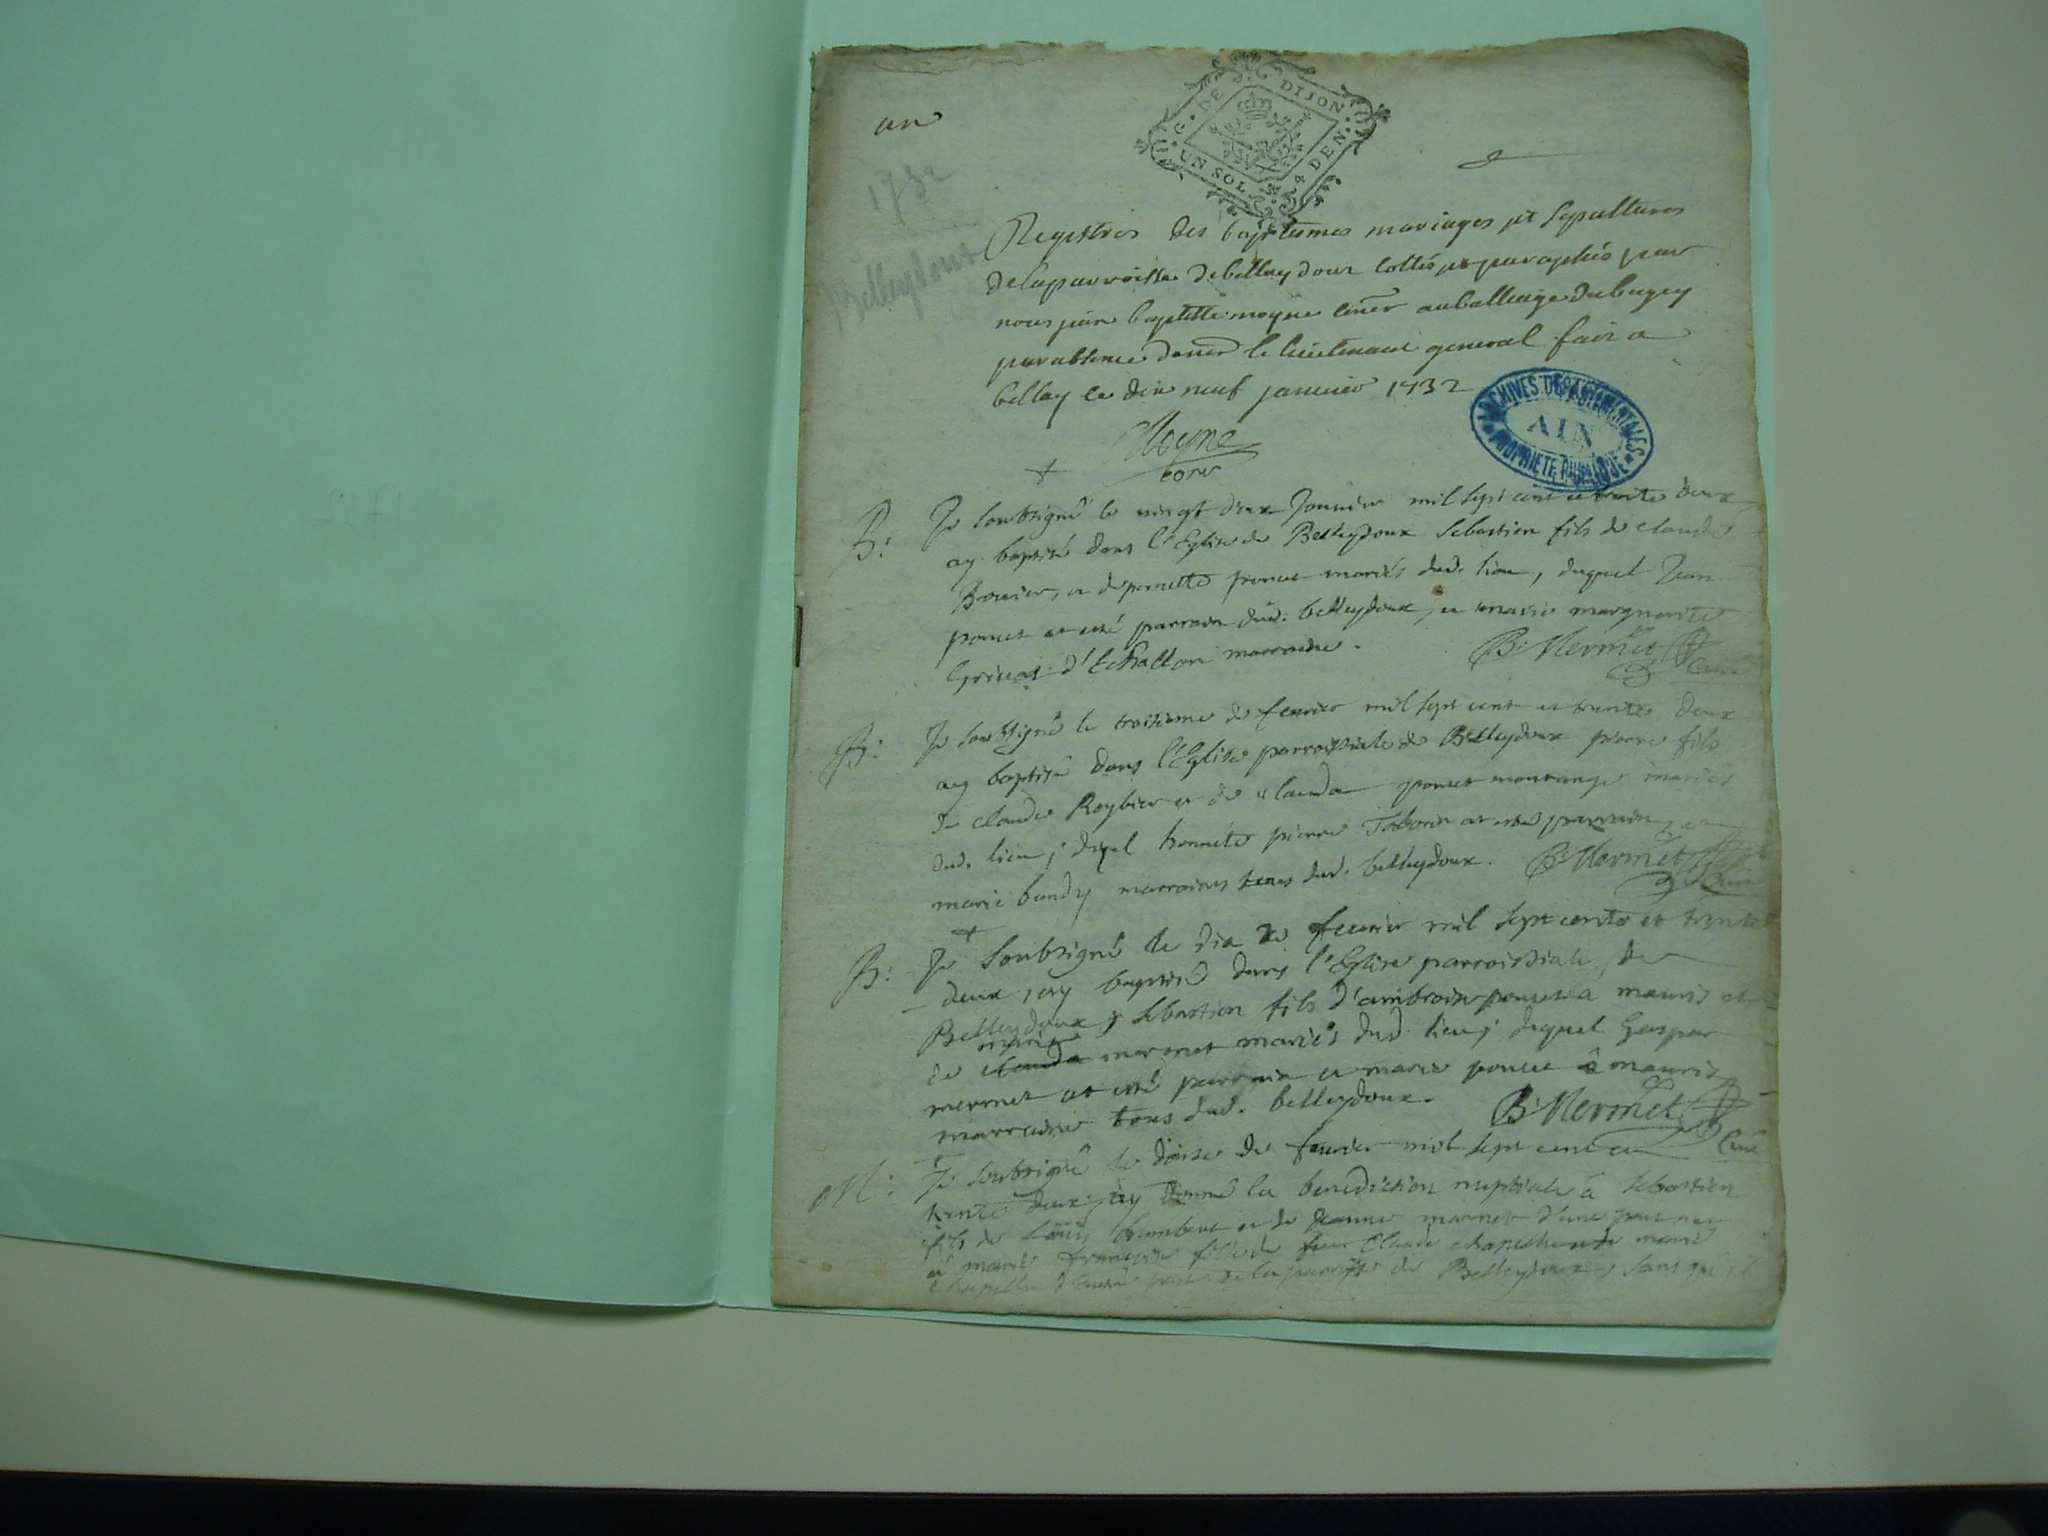 un
G. DE DIJON
UN SOL. 4 DEN.
1732
Belleydoux
Registres des baptemes mariages et sepultures
de la parroisse de belleydoux cottés et paraphés par
nous jean baptiste moyne au balliage du bugey
par absence le lieutenant general fait a
bellay ce dix neuf janvier 1732
Moyne
ARCHIVES DEPARTEMENTALES
AIN
PROPRIETE PUBLIQUE
B: Je soubsigné le vingt deux Janvier mil sept cent et trente deux
ay baptisé dans l'Eglise de Belleydoux sebastien fils de claude
et de pernette poncet mariés dud. lieu, duquel Jean
poncet at esté parrain dud. belleydoux, et marie marguerite
d'Echallon marraine.
B: Mermet Curé
B: Je soubsigné le troisieme de fevrier mil sept cent et trente deux
ay baptisé dans l'Eglise parroissiale de Belleydoux pierre fils
de claude Roybier et de clauda poncet montange mariés
dud. lieu, duql honnête pierre Taborin at esté parrain, et
marie bandy marraine tous dud. belleydoux. B: Mermet Curé
B: Je soubsigné le dix de fevrier mil sept cents et trente
deux, ay baptisé dans l'Eglise parroissiale de
Belleydoux, sebastien fils d'ambroise poncet a mauris et
marie
de clauda mermet mariés dud. lieu, duquel Gaspar
mermet at esté parrain et marie poncet a mauris
marraine tous dud. belleydoux. B: Mermet Curé
M: Je soubsigné le douse de fevrier mil sept cent et
trente deux, ay donné la benediction nuptiale à sebastien
fils de Loüis humbert et de jeanne mermet d'une part
et marie françoise fille de feu Claude
d'autre part de la parroisse de Belleydoux, sans qu'il